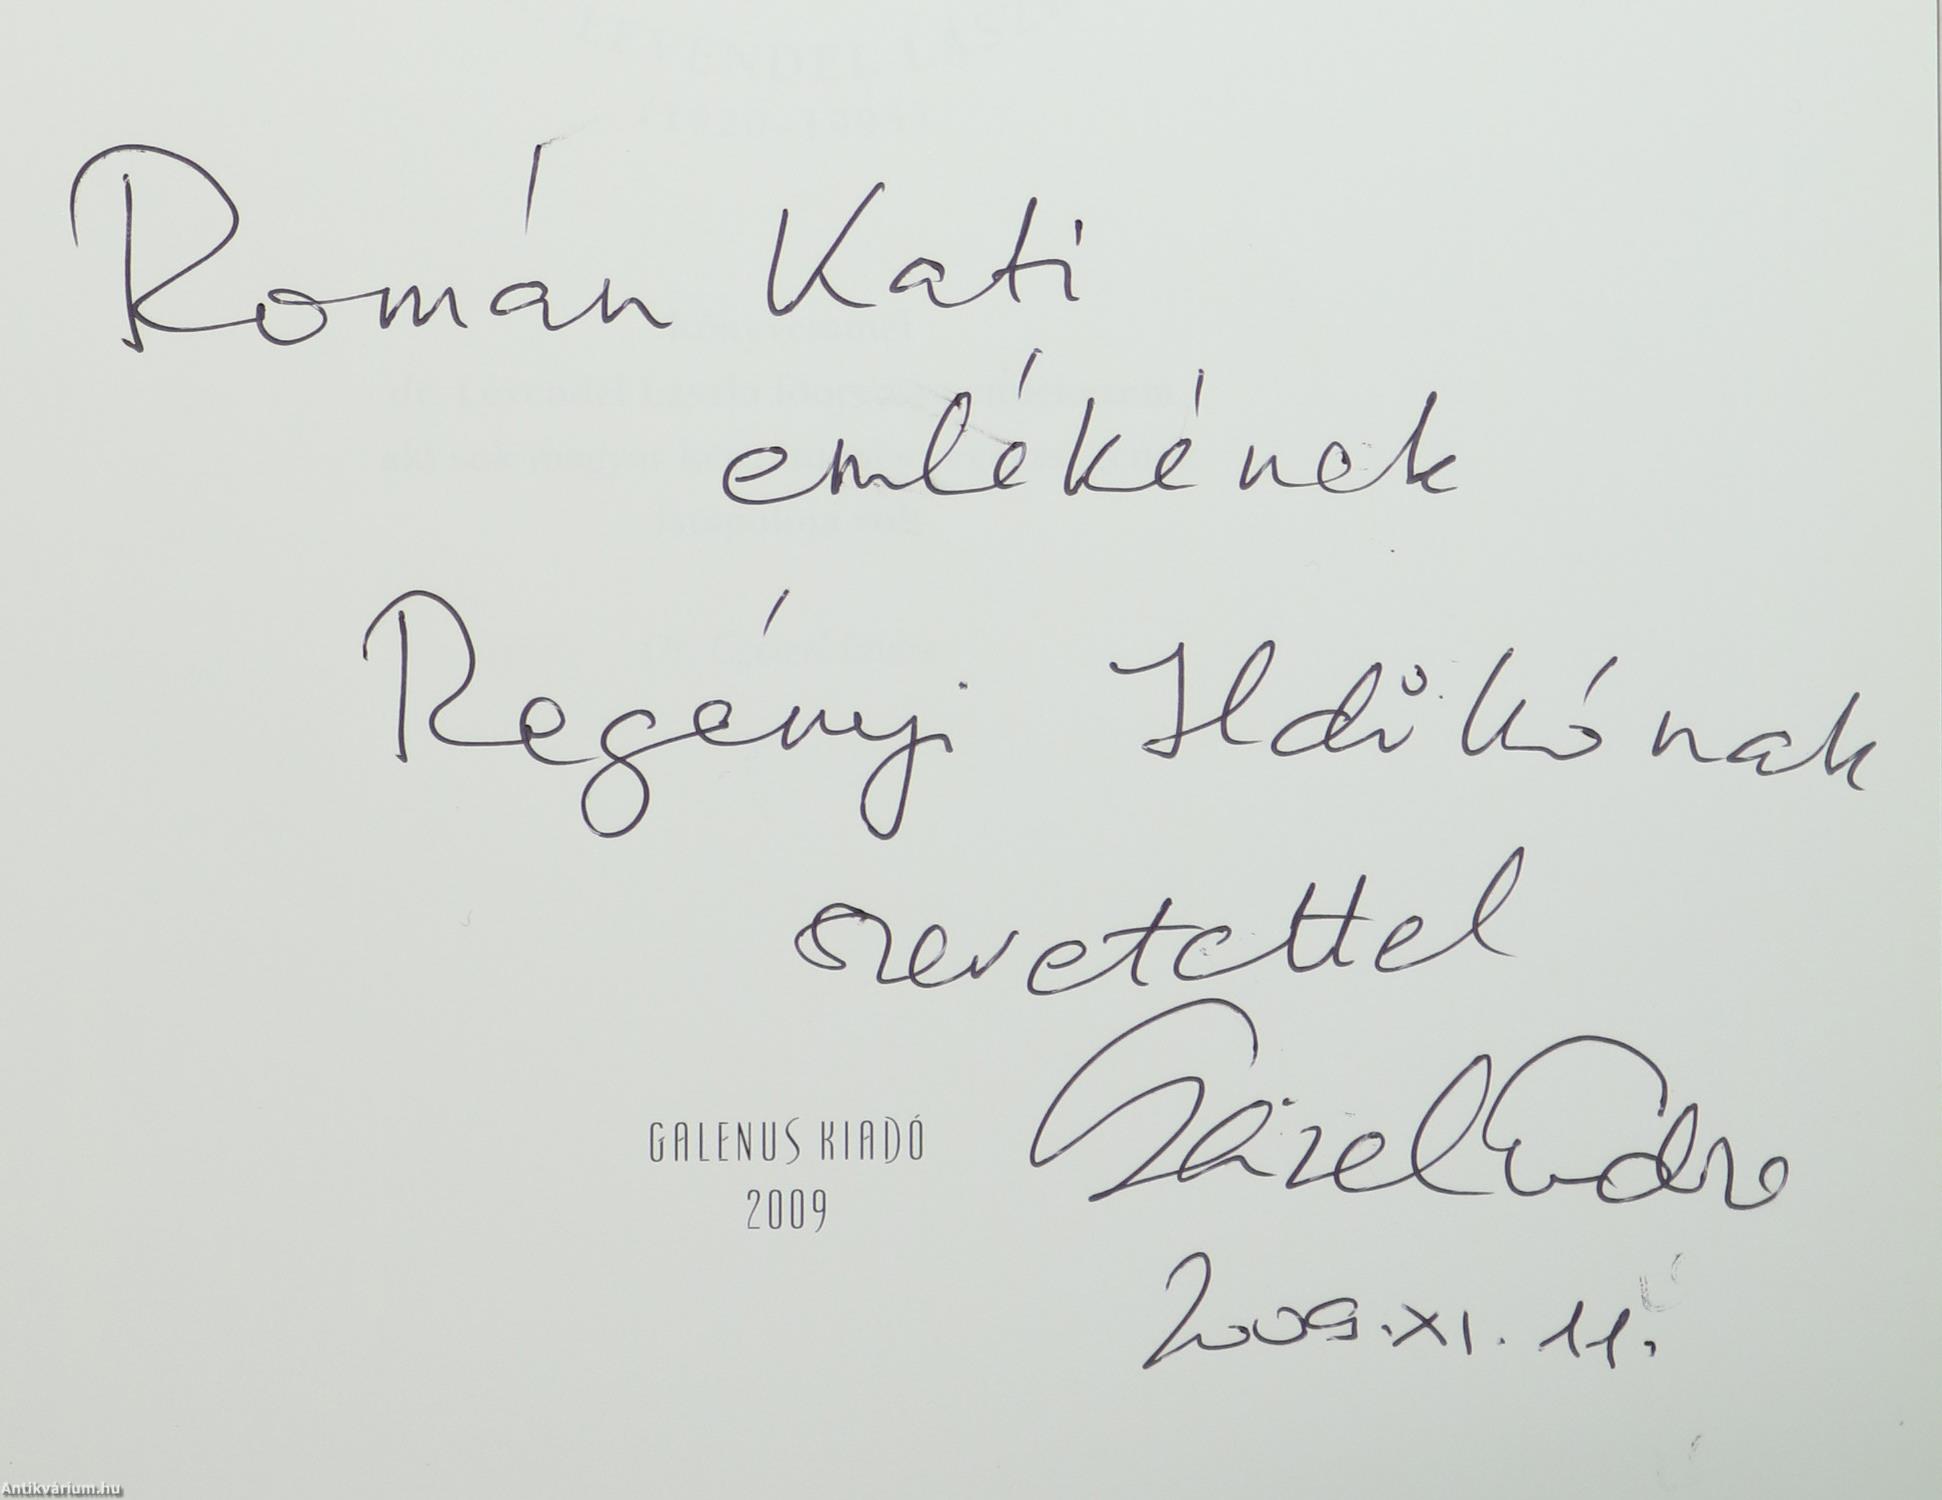 Román Kati
emlékének
Regényi Ildikónak
szeretettel
Endre
GALENUS KIADÓ
2009
2009. XI. 11.
Antikvárium.hu